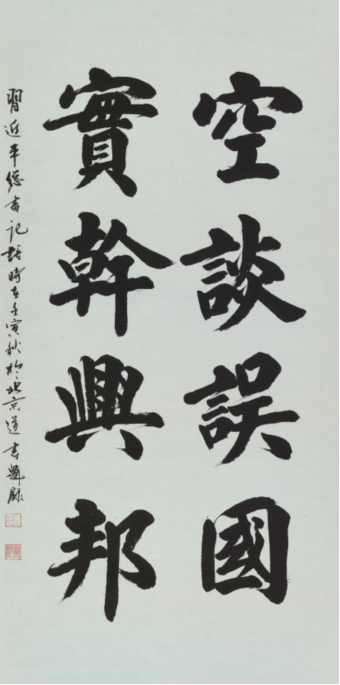 空談誤國
實幹興邦
習近平總書記語時在壬寅秋於北京道書劉